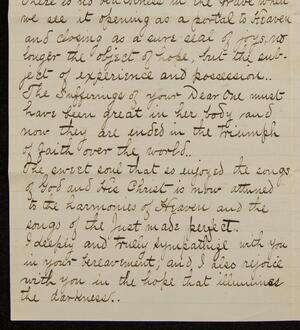 There is no                in the Grave when
we see it opening as a portal to Heaven
and closing as a sure seal of joys, no
longer the object of hope, but the sub-
ject of experience and possession..
The Sufferings of your Dear One must
have been great in her body, and
now they are ended in the triumph
of faith over the world..
The sweet soul that so enjoyed the songs
of God and His Christ is now attuned
to the harmonies of Heaven and the
songs of the Just made perfect.
I deeply and truly sympathize with you
in your bereavement, and, I also rejoice
with you in the hope that illumines
the darkness..